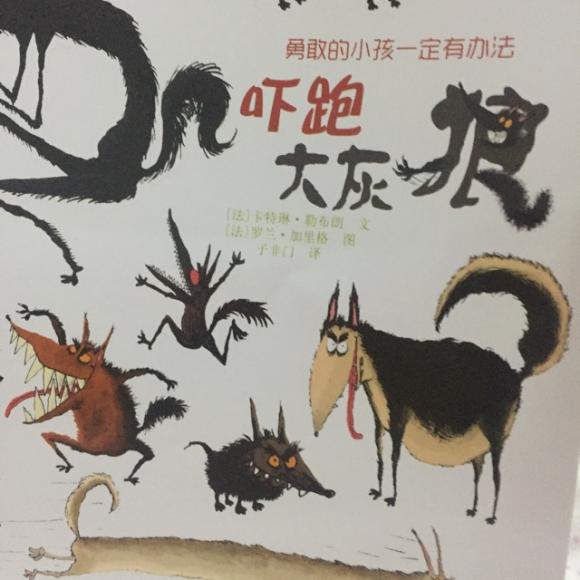 勇敢的小孩一定有办法
吓跑
大灰狼
[法]卡特琳·勒布朗 文
[法]罗兰·加里格 图
于非门 译